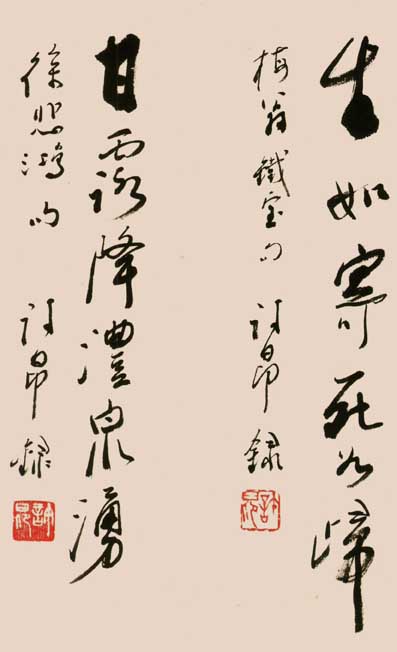 生如寄死如歸
梅翁鐵宝句 許昂錄
甘露降澧泉湧
徐悲鴻句 許昂錄
許昂
許昂